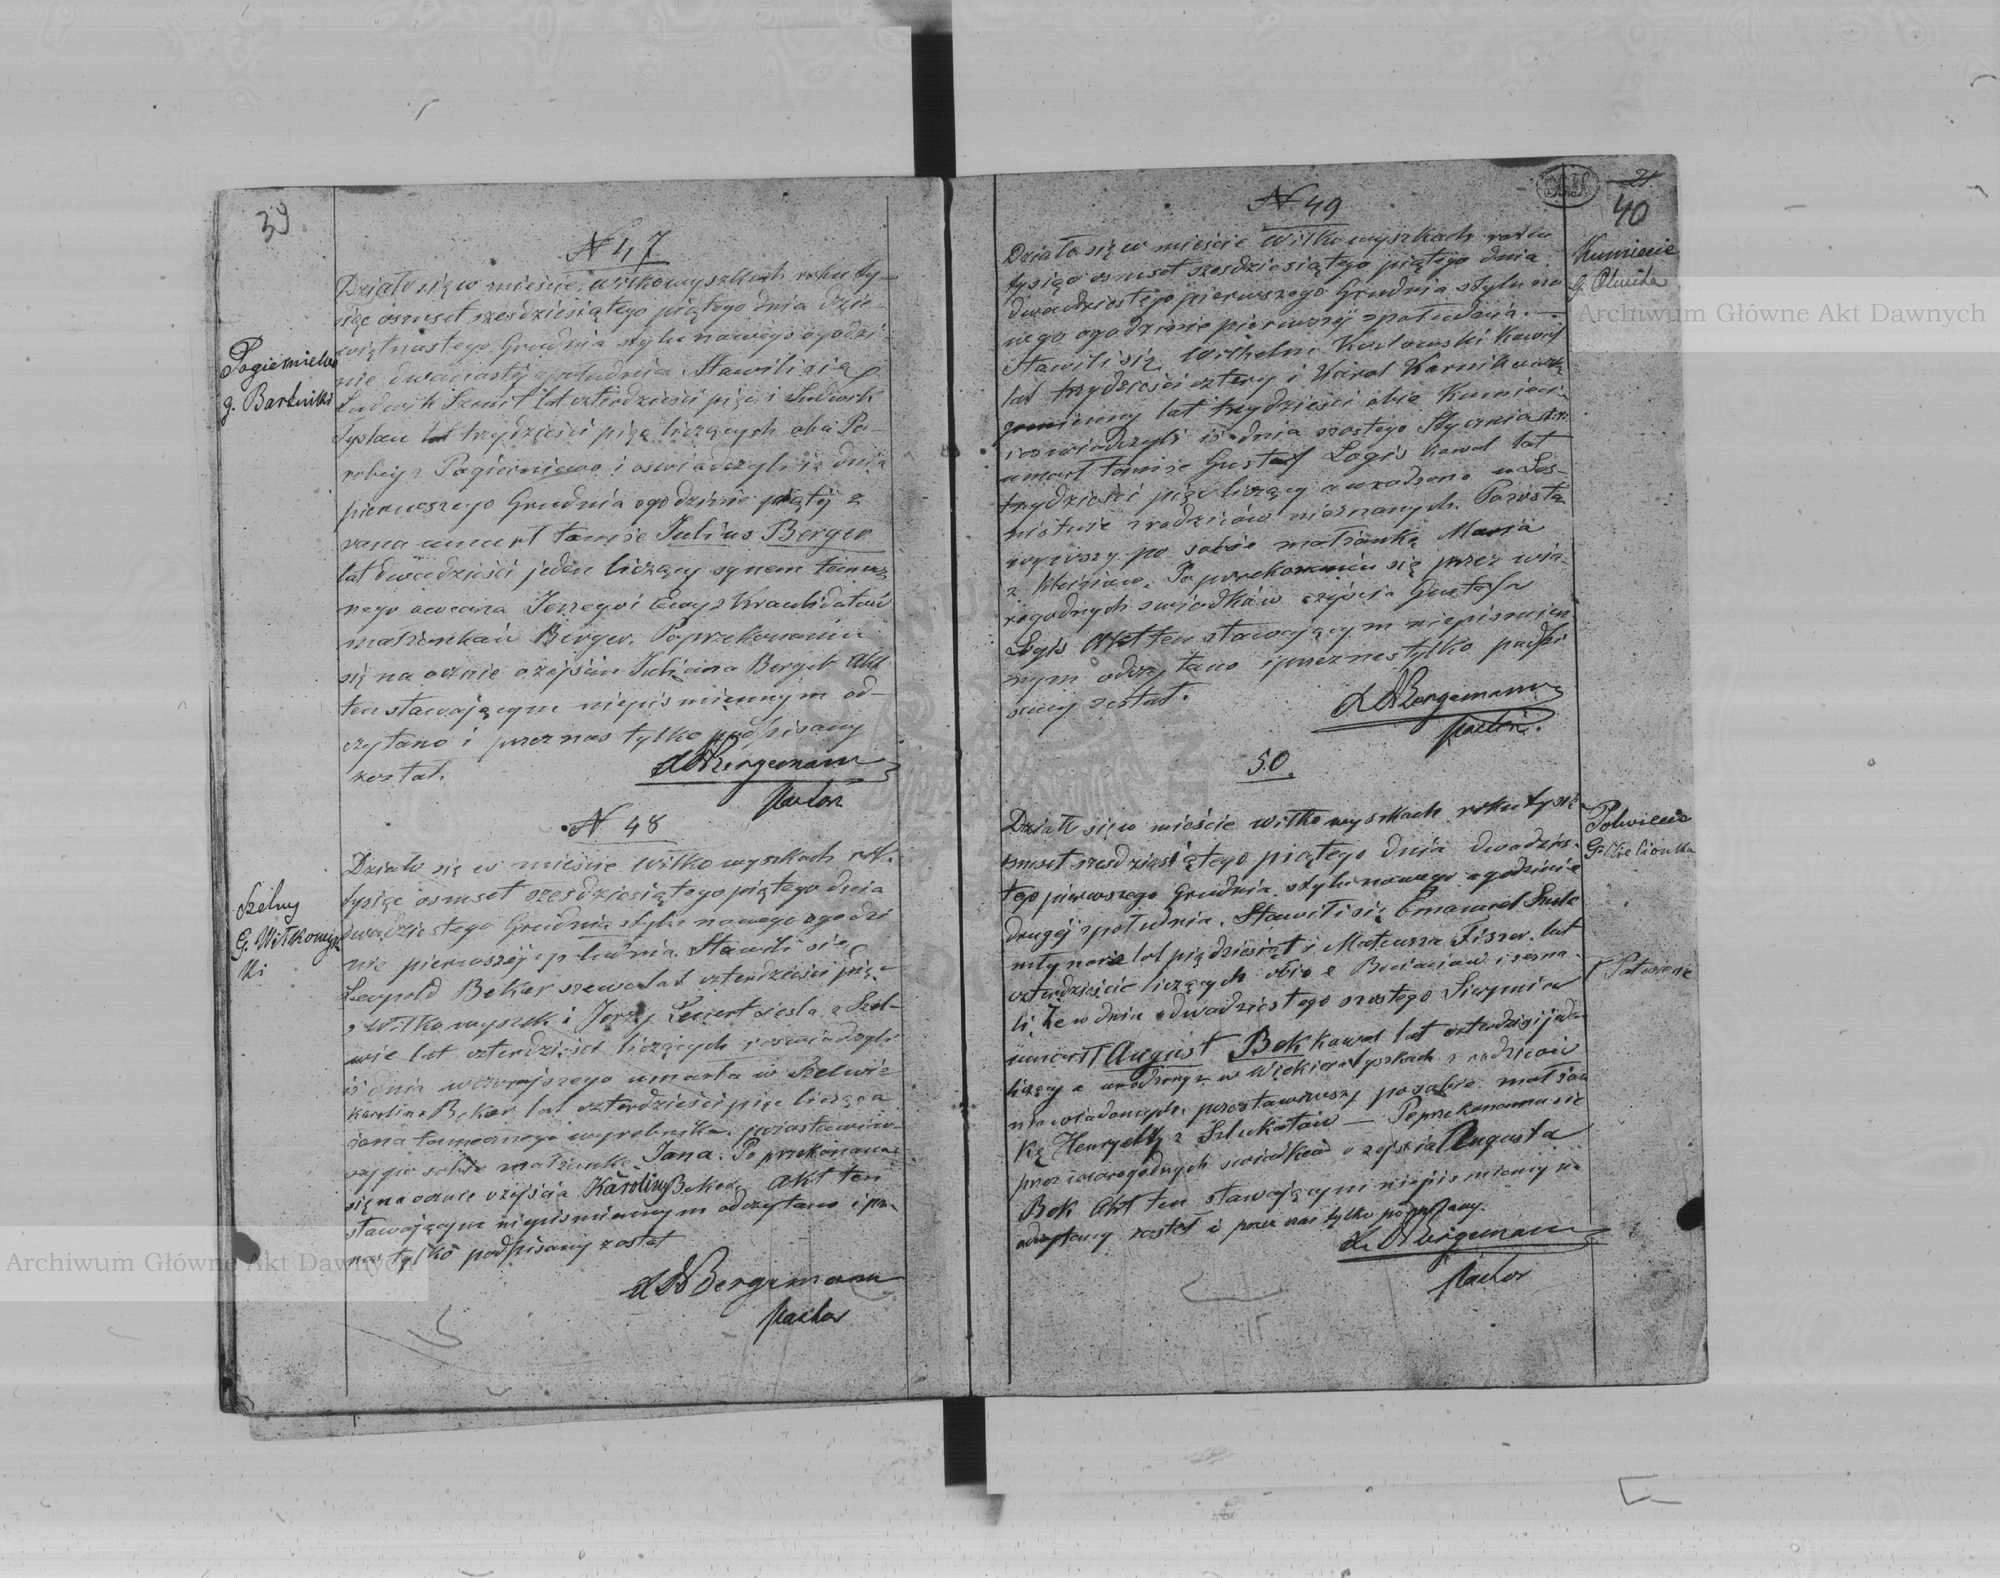 39
N 47
Działo się w mieście Wilkowyszkach roku ty-
siąc osmset szesdziesiątego piątego dnia dzie-
więtnastego Grudnia stylu nowego o godzi-
nie dwanastej z południa. Stawili się
Ludwik Szmit lat czterdzieści pięć i Ludwik
lat trzydzieści pięć liczących oba Pa-
robcy z i oświadczyli iż dnia
pierwszego Grudnia o godzinie piątej z
rana umarł tamże Julius Berger
lat dwadzieścia jeden liczący synem
nego Jerzego i Ewy z
małżonków Berger. Po przekonaniu
się naocznie o zejściu Juliusa Berger Akt
ten stawającym niepismiennym od-
czytano i przez nas tylko podpisany
został.
Bergemann
Pastor
g. Bartniki
N 48
Działo się w mieście Wilkowyszkach rok.
tysiąc osmset szesdziesiątego piątego dnia
dwudziestego Grudnia stylu nowego o godzi
nie pierwszej z południa. Stawili się
Leopold Beker szewc lat czterdzieści pięć
z Wilkowyszek i Jerzy ciesla z Szel-
wie lat czterdzieści liczących i oświadczyli
iż dnia wczorajszego umarła w Szelwie
Karolina Beker lat czterdzieści pięć licząca
żona tamecznego wyrobnika, pozostawiw-
szy po sobie małżonka Jana. Po przekonaniu
się naocznie o zejściu Karoliny Beker Akt ten
stawającym niepismiennym odczytano i prz.
nas tylko podpisany został
Bergemann
Pastor
Szelwy
G. Wilkowysz
ki
Archiwum Główne Akt Dawnych
21
40
N 49
Działo się w mieście Wilkowyszkach roku
tysiąc osmset szesdziesiątego piątego dnia
dwudziestego pierwszego Grudnia stylu no
wego o godzinie pierwszej z południa.
Stawili się Wilhelm Kozłowski Kowal
lat trzydzieści cztery i Karol
lat trzydzieści obie
i oświadczyli iż dnia szostego Stycznia
umarł tamże Gustaf Logis kowal lat
trzydzieści pięć liczący a urodzony w
z rodziców nieznanych. Pozosta
wiwszy po sobie małżonkę Maria
z Po przekonaniu się przez wia
rogodnych swiadków o zejściu Gustafa
Logis Akt ten stawającym niepismien
nym odczytano i przez nas tylko podpi
sany został.
Bergemann
Pastor.
Kumiecie
G. Olwita
Archiwum Główne Akt Dawnych
50.
Działo się w mieście Wilkowyszkach roku tysią
osmset szesdziesiątego piątego dnia dwudzies-
tego pierwszego Grudnia stylu nowego o godzinie
drugiej z południa. Stawili się Emanuel
młynarz lat pięćdziesiąt i Mateusza Fiszer lat
czterdzieście liczących obie z i
li, Że w dniu dwudziestego szostego Sierpnia
umarł August Bek kowal lat czterdzieści jeden
liczący a urodzony w z rodziców
niewiadomych, pozostawiwszy po sobie małżon
kę Henrykę z Po przekonaniu się
przez wiarogodnych swiadków o zejściu Augusta
Bek Akt ten stawającym niepismiennym
odczytany został i przez nas tylko podpisany.
Bergemann
Pastor